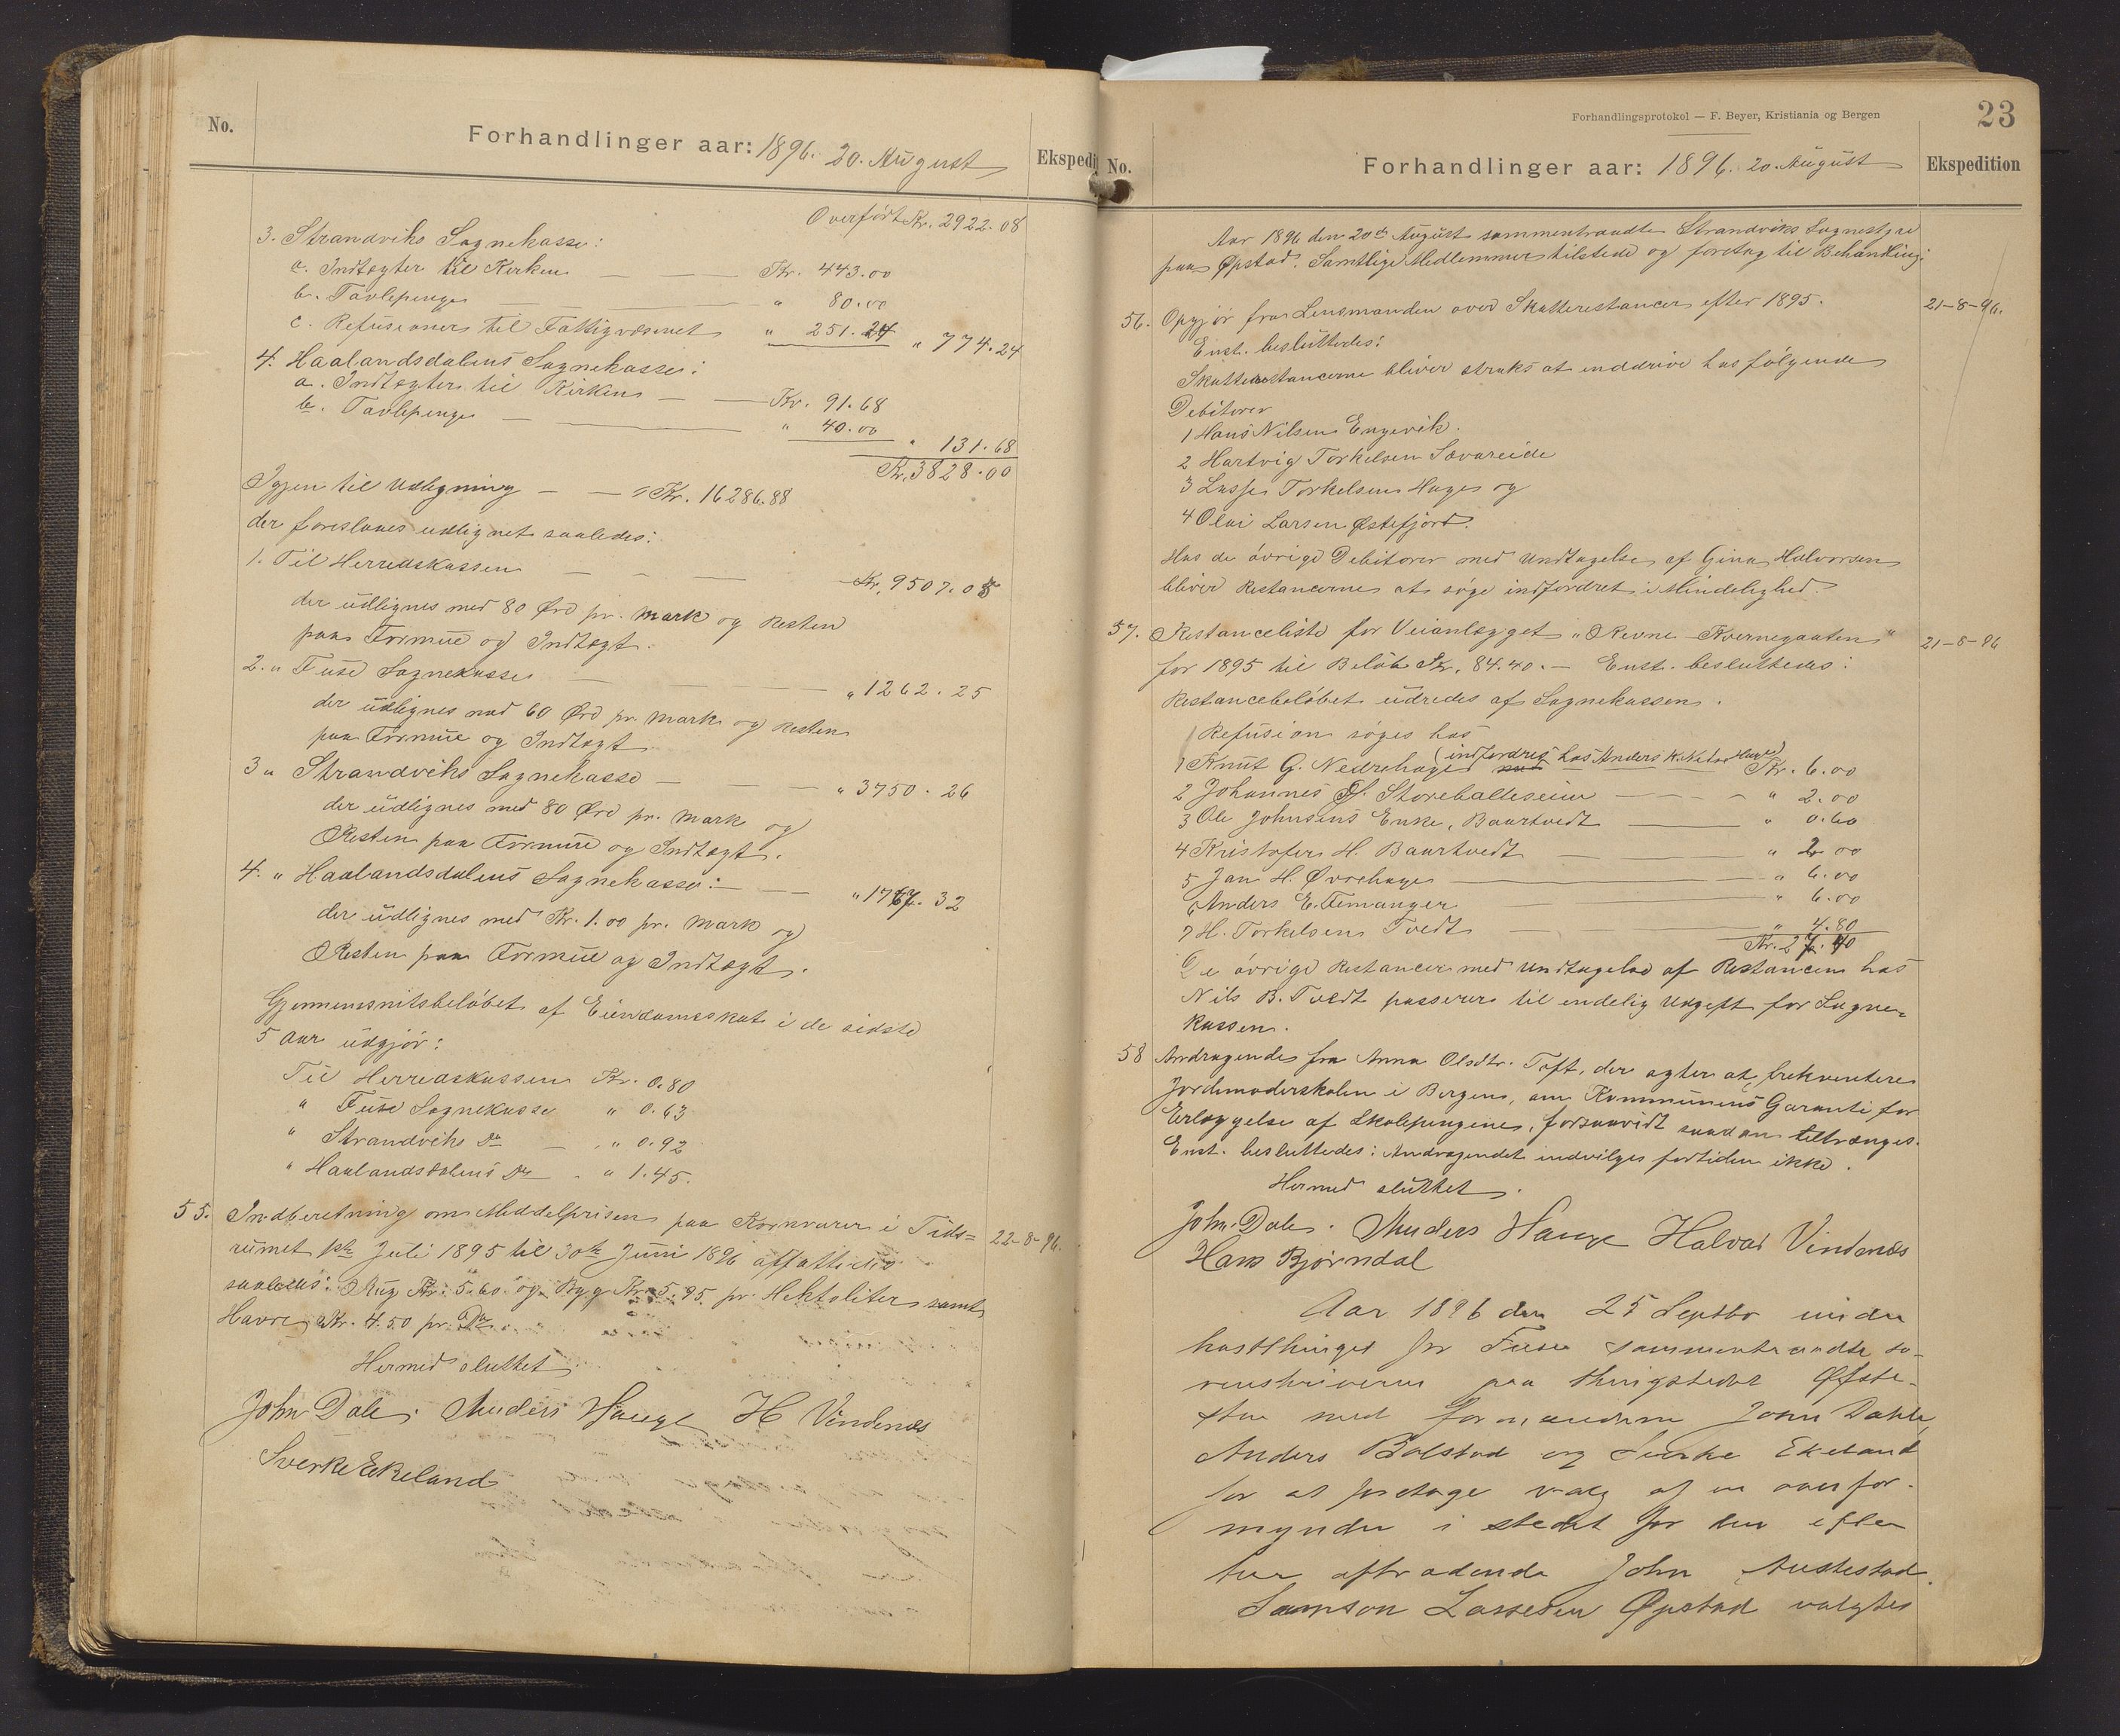 No.
Forhandlinger aar: 1896. 20. August
Ekspedi
Overført Kr. 2922.08
3. Strandviks Sognekasse:
a. Indtægter til Kirken — — Kr. 443.00
b. Tavlepenge — — " 80.00
c. Refusioner til Fattigvæsenet " 251.24 " 774.24
4. Haalandsdalens Sognekasse:
a. Indtægter til Kirken — — Kr. 91.68
b. Tavlepenge — — " 40.00 " 131.68
Kr. 3828.00
Igjen til Udligning — — Kr. 16286.88
der foreslaaes udlignet saaledes:
1. Til Herredskassen — — — Kr. 9507.05
der udlignes med 80 Øre pr. Mark og Resten
paa Formue og Indtægt.
2. " Fuse Sognekasse — — — " 1262.25
der udlignes med 60 Øre pr. Mark og Resten
paa Formue og Indtægt
3 " Strandviks Sognekasse — — — " 3750.26
der udlignes med 80 Øre pr. Mark og
Resten paa Formue og Indtægt.
4. " Haalandsdalens Sognekasse: — — " 1767.32
der udlignes med Kr. 1.00 pr. Mark og
Resten paa Formue og Indtægt.
Gjennemsnitsbeløbet af Eiendomsskat i de sidste
5 Aar udgjør:
Til Herredskassen Kr. 0.80
" Fuse Sognekasse " 0.63
" Strandviks Do — " 0.92
" Haalandsdalens Do - " 1.45.
55. Indberetning om Middelprisen paa Kornvarer i Tids= 22-8-96.
rumet 1ste Juli 1895 til 30te Juni 1896 affattedes
saaledes: Rug Kr. 5.60 og Byg Kr. 5.95 pr. Hektoliter samt
Havre Kr. 4.50 pr. Do.
Hermed sluttet
John Dale. Anders Hauge H Vindenes
Sverke Ekeland
Forhandlingsprotokol — F. Beyer, Kristiania og Bergen
23
No.
Forhandlinger aar: 1896. 20. August
Ekspedition
Aar 1896 den 20de August sammentraadte Strandviks Sognestyre
paa Øpstad. Samtlige Medlemmer tilstede og foretog til Behandling:
56. Opgjør fra Lensmanden over Skatterestancer efter 1895. 21-8-96.
Enst. besluttedes:
Skatterestancerne bliver straks at inddrive hos følgende
Debitorer
1 Hans Nilsen Engevik.
2 Hartvig Torkelsen Sævareide
3 Lasse Torkelsen Hage og
4 Olai Larsen Østefjord.
Hos de øvrige Debitorer med Undtagelse af Gina Halvorsen
bliver Restancerne at søge indfordret i Mindelighed.
57. Restanceliste for Veianlægget "Revne - Kvernegaaten" 21-8-96
for 1895 til Beløb Kr. 84.40. — Enst. besluttedes:
Restancebeløbet udredes af Sognekassen.
Refusion søges hos
1 Knut G. Nedrehage (indfordres hos Anders K. Hage) Kr. 6.00
2 Johannes J. Storehalleseim — — " 2.00
3 Ole Johnsens Enke, Baartvedt — " 0.60
4 Kristofer H. Baartvedt — — " 2.00
5 Jan H. Øvrehage — " 6.00
6 Anders E. Femanger — " 6.00
7 H. Torkelsen Tvedt — — " 4.80
Kr. 27.40
De øvrige Restancer med Undtagelse af Restancen hos
Nils B. Tvedt passerer til endelig Udgift for Sogne=
kassen.
58 Andragende fra Anna Olsdtr. Toft, der agter at frekventere
Jordmoderskolen i Bergen, om Kommunens Garanti for
Erlæggelse af Skolepengene, forsaavidt saadan tiltrænges.
Enst. besluttedes: Andragendet indvilges fortiden ikke.
Hermed sluttet.
John Dale. Anders Hauge Halvar Vindenes
Hans Bjørndal
Aar 1896 den 25 Septbr under
høstthinget for Fuse sammentraadte so-
renskriveren paa thingstedet Øfste-
stue med formændene John Dahle,
Anders Bolstad og Sverke Ekeland
for at foretage valg af en overfor-
mynder i stedet for den efter
tur aftrædende John Austestad.
Samson Lassesen Øpstad valgtes